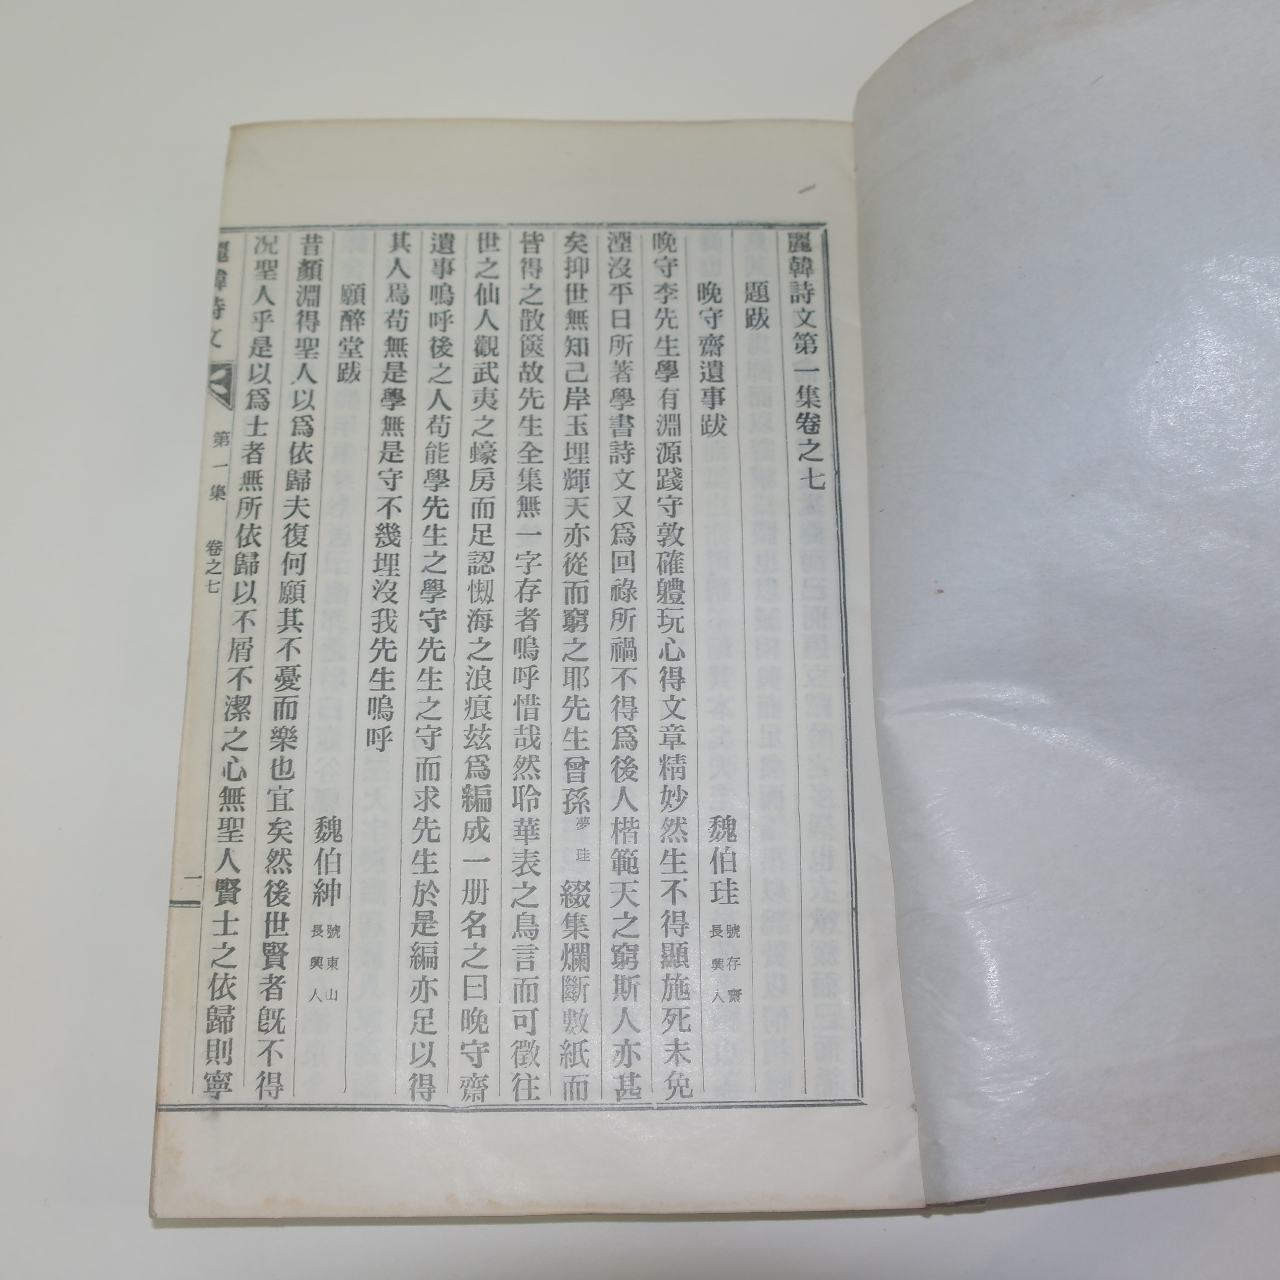 麗韓詩文第一集卷之七
題跋
晩守齋遺事跋 魏伯珪 號存齋 長興人
晩守李先生學有淵源踐守敦確軆玩心得文章精妙然生不得顯施死未免
湮沒平日所著學書詩文又爲回祿所禍不得爲後人楷範天之窮斯人亦甚
矣抑世無知己岸玉埋輝天亦從而窮之耶先生曾孫夢珪綴集爛斷數紙而
皆得之散篋故先生全集無一字存者嗚呼惜哉然聆華表之鳥言而可徵往
世之仙人觀武夷之蠔房而足認刼海之浪痕玆爲編成一册名之曰晩守齋
遺事嗚呼後之人苟能學先生之學守先生之守而求先生於是編亦足以得
其人焉苟無是學無是守不幾埋沒我先生嗚呼
願醉堂跋 魏伯紳 號東山 長興人
昔顏淵得聖人以爲依歸夫復何願其不憂而樂也宜矣然後世賢者旣不得
况聖人乎是以爲士者無所依歸以不屑不潔之心無聖人賢士之依歸則寧
麗韓詩文 第一集 卷之七 一